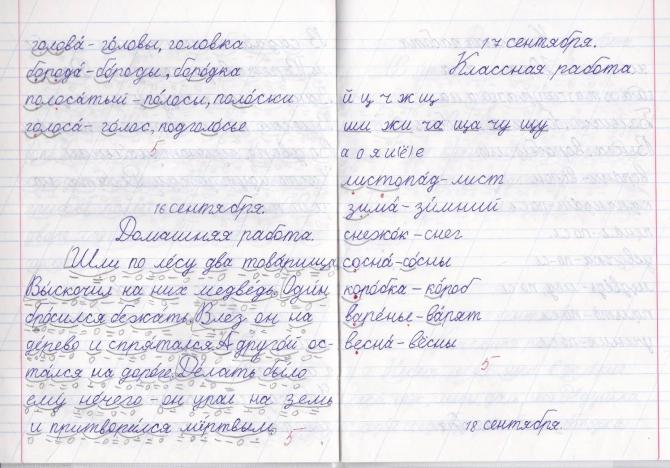 голова́ - го́ловы, головка
борода́ - бо́роды, боро́дка
полоса́тый - по́лосы, поло́ски
голоса́ - го́лос, подголо́сье
5
16 сентября.
Домашняя работа.
Шли по ле́су два това́рища.
Выскочил на них медведь. Оди́н
бро́сился бежать. Влез он на
де́рево и спря́тался. А друго́й ос-
та́лся на доро́ге. Де́лать бы́ло
ему не́чего - он упал на земь
и притвори́лся мёртвым.
5
17 сентября.
Классная работа
й ц ч ж щ
ши жи ча ща чу щу
а о я и(ё) е
листопа́д - лист
зима́ - зи́мний
снежо́к - снег
сосна́ - со́сны
коро́бка - ко́роб
варе́нье - ва́рят
весна́ - вёсны
5
18 сентября.